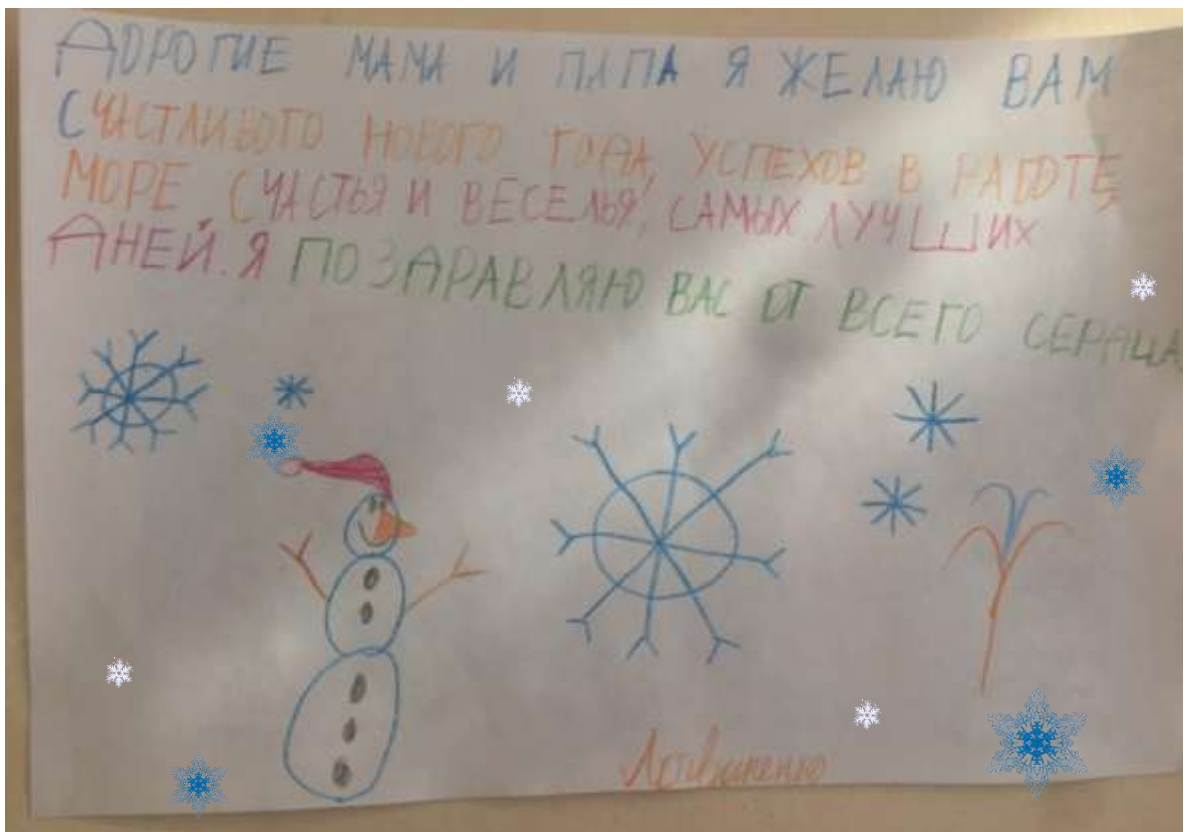 ДОРОГИЕ МАМА И ПАПА Я ЖЕЛАЮ ВАМ
СЧАСТЛИВОГО НОВОГО ГОДА, УСПЕХОВ В РАБОТЕ,
МОРЕ СЧАСТЬЯ И ВЕСЕЛЬЯ, САМЫХ ЛУЧШИХ
ДНЕЙ. Я ПОЗДРАВЛЯЮ ВАС ОТ ВСЕГО СЕРДЦА.